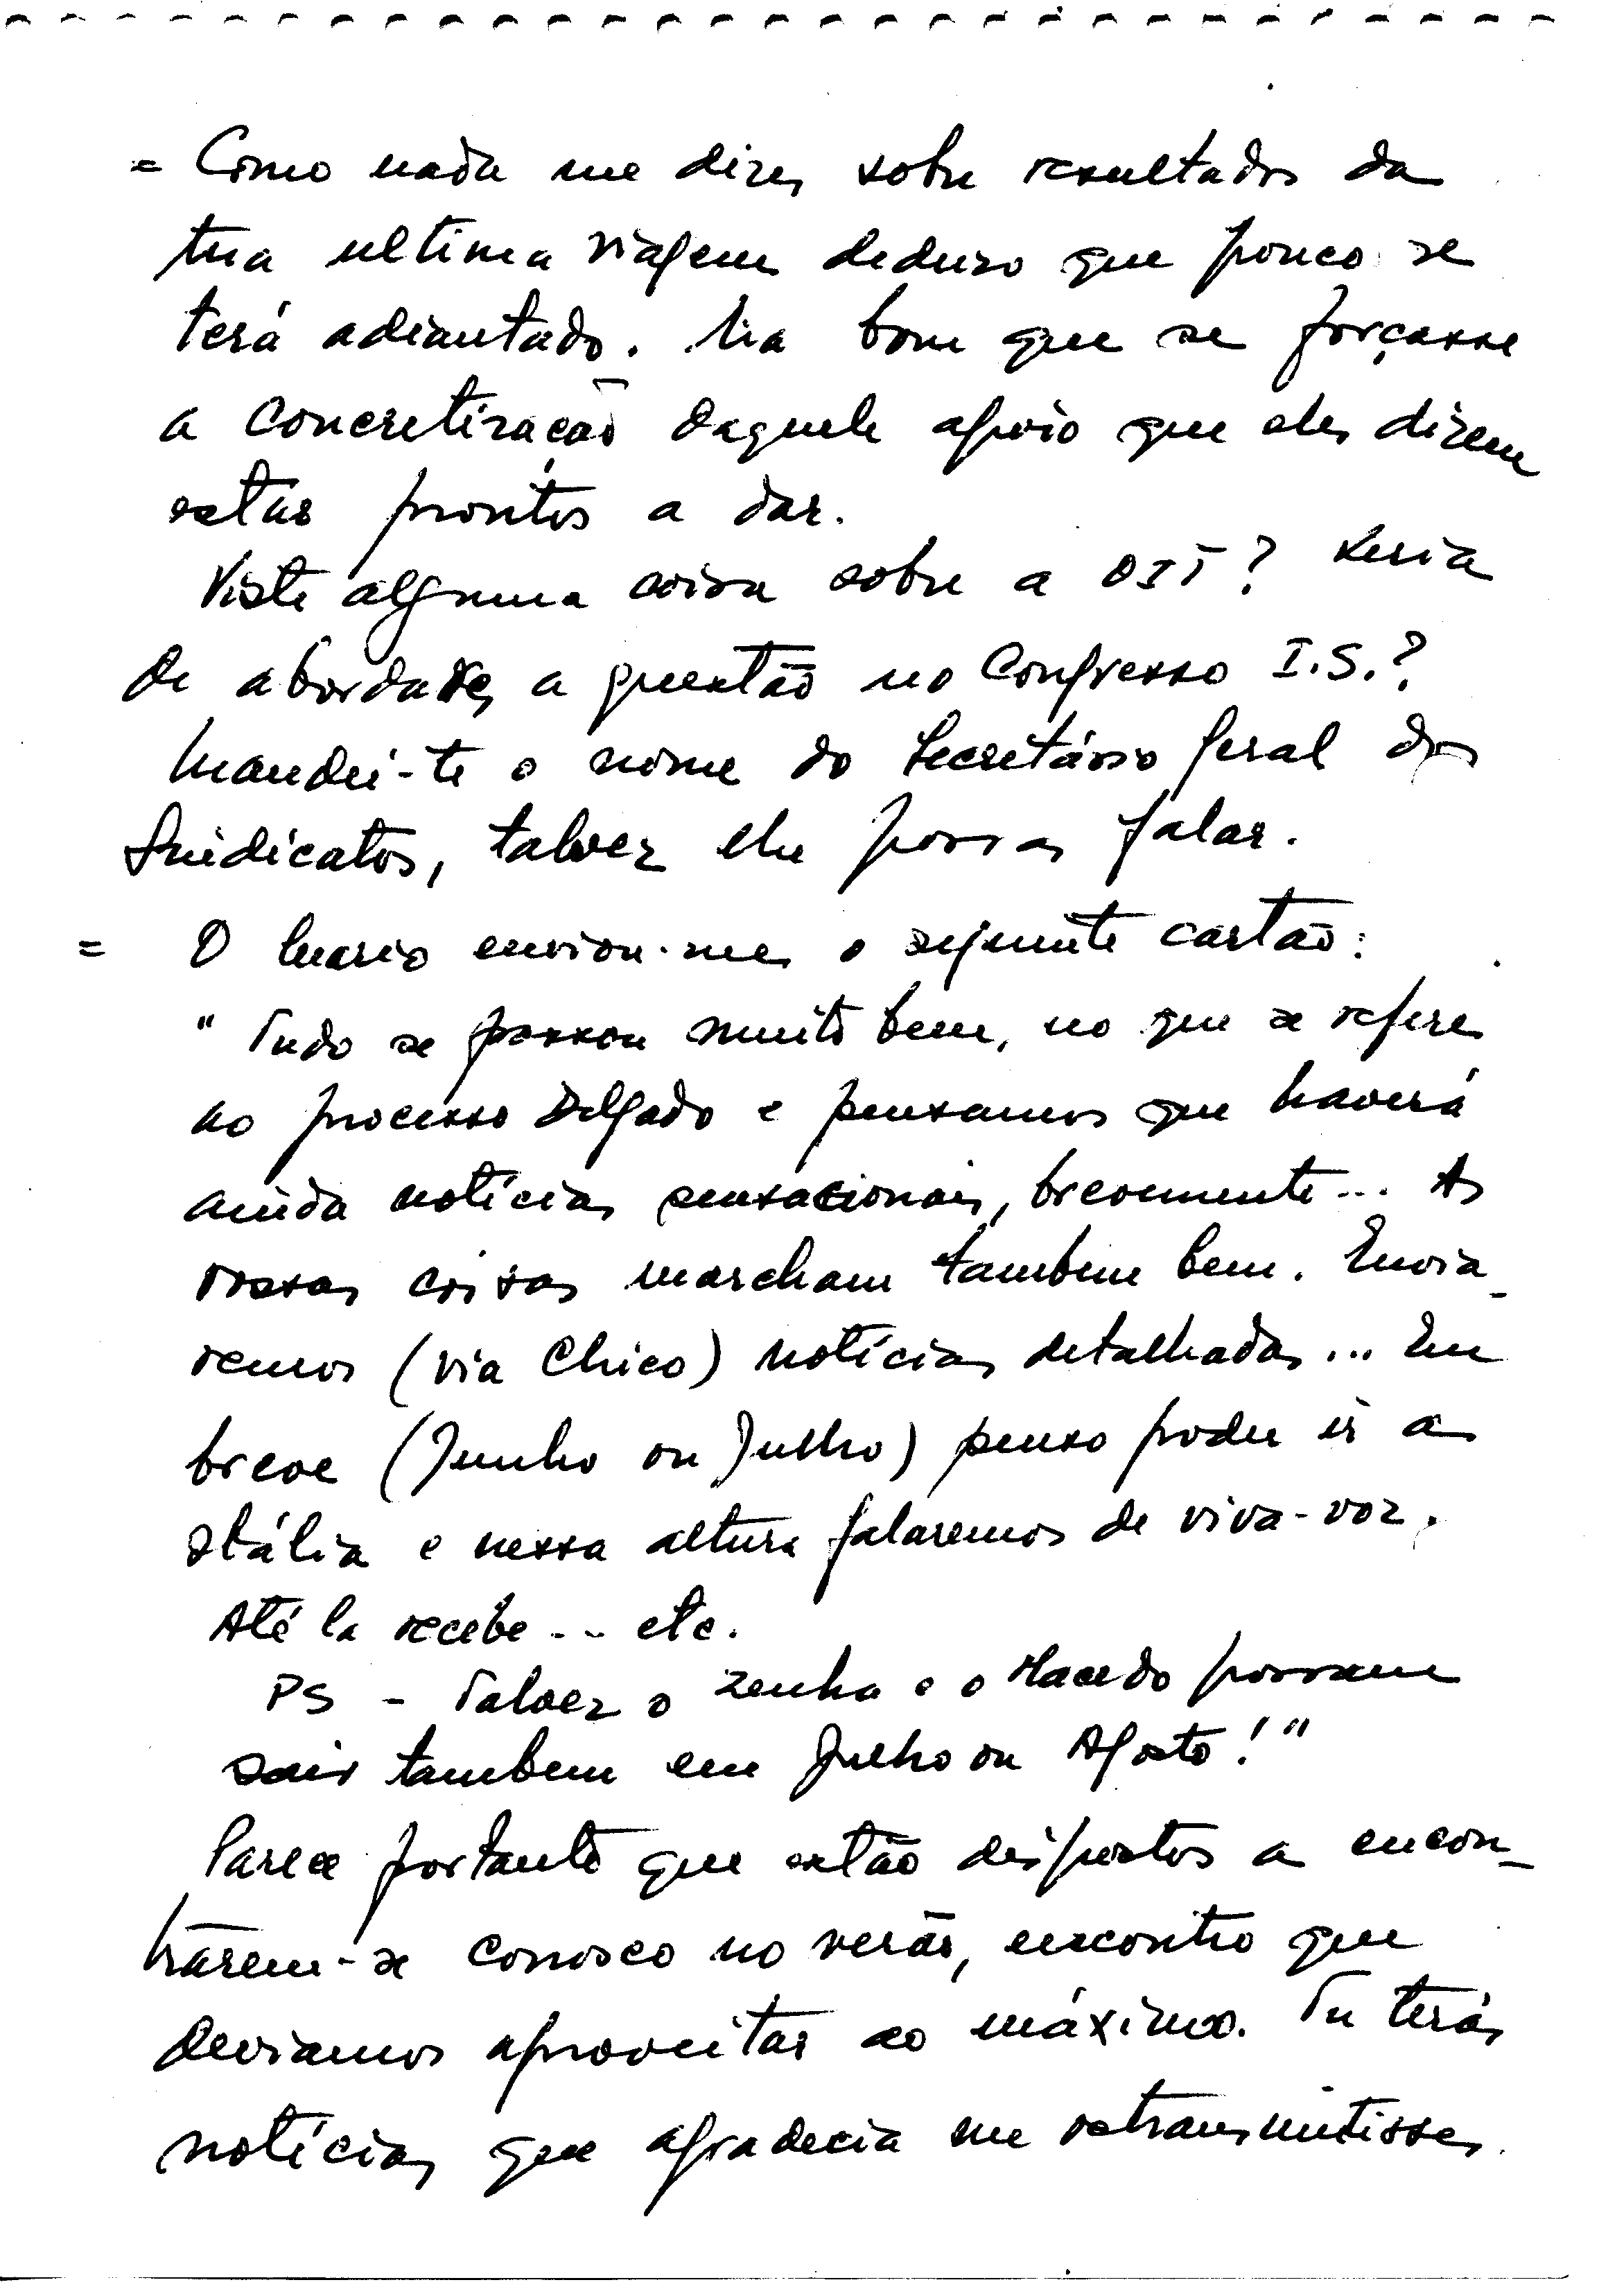 = Como nada me dizes sobre resultados da
tua ultima viagem deduzo que pouco se
terá adiantado. Era bom que se forçasse
a concretização daquele apoio que eles dizem
estar prontos a dar.
Viste alguma coisa sobre a OIT? Seria
de abordares a questão no Congresso I.S.?
Mandei-te o nome do Secretário Geral dos
Sindicatos, talvez lhe possas falar.
= O Mario enviou-me o seguinte cartão:
" Tudo se passou muito bem, no que se refere
ao processo Delgado e pensamos que haverá
ainda notícias sensacionais, brevemente... As
vossas coisas marcham tambem bem. Envia-
remos (via Chico) notícias detalhadas... Em
breve (Junho ou Julho) penso poder ir a
Itália e nessa altura falaremos de viva-voz.
Até la recebe... etc.
PS - Talvez o Zenha e o Macedo possam
sair tambem em Julho ou Agosto!"
Parece portanto que estão dispostos a encon-
trarem-se conosco no verão, encontro que
deviamos aproveitar ao máximo. Tu terás
notícias que agradecia me retransmitisses.